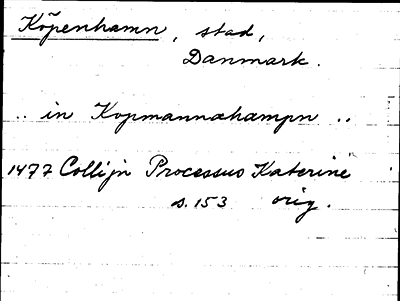 Köpenhamn, stad,
Danmark.
.. in Kopmannahampn ..
1477 Collijn Processus Katerine
s. 153 orig.